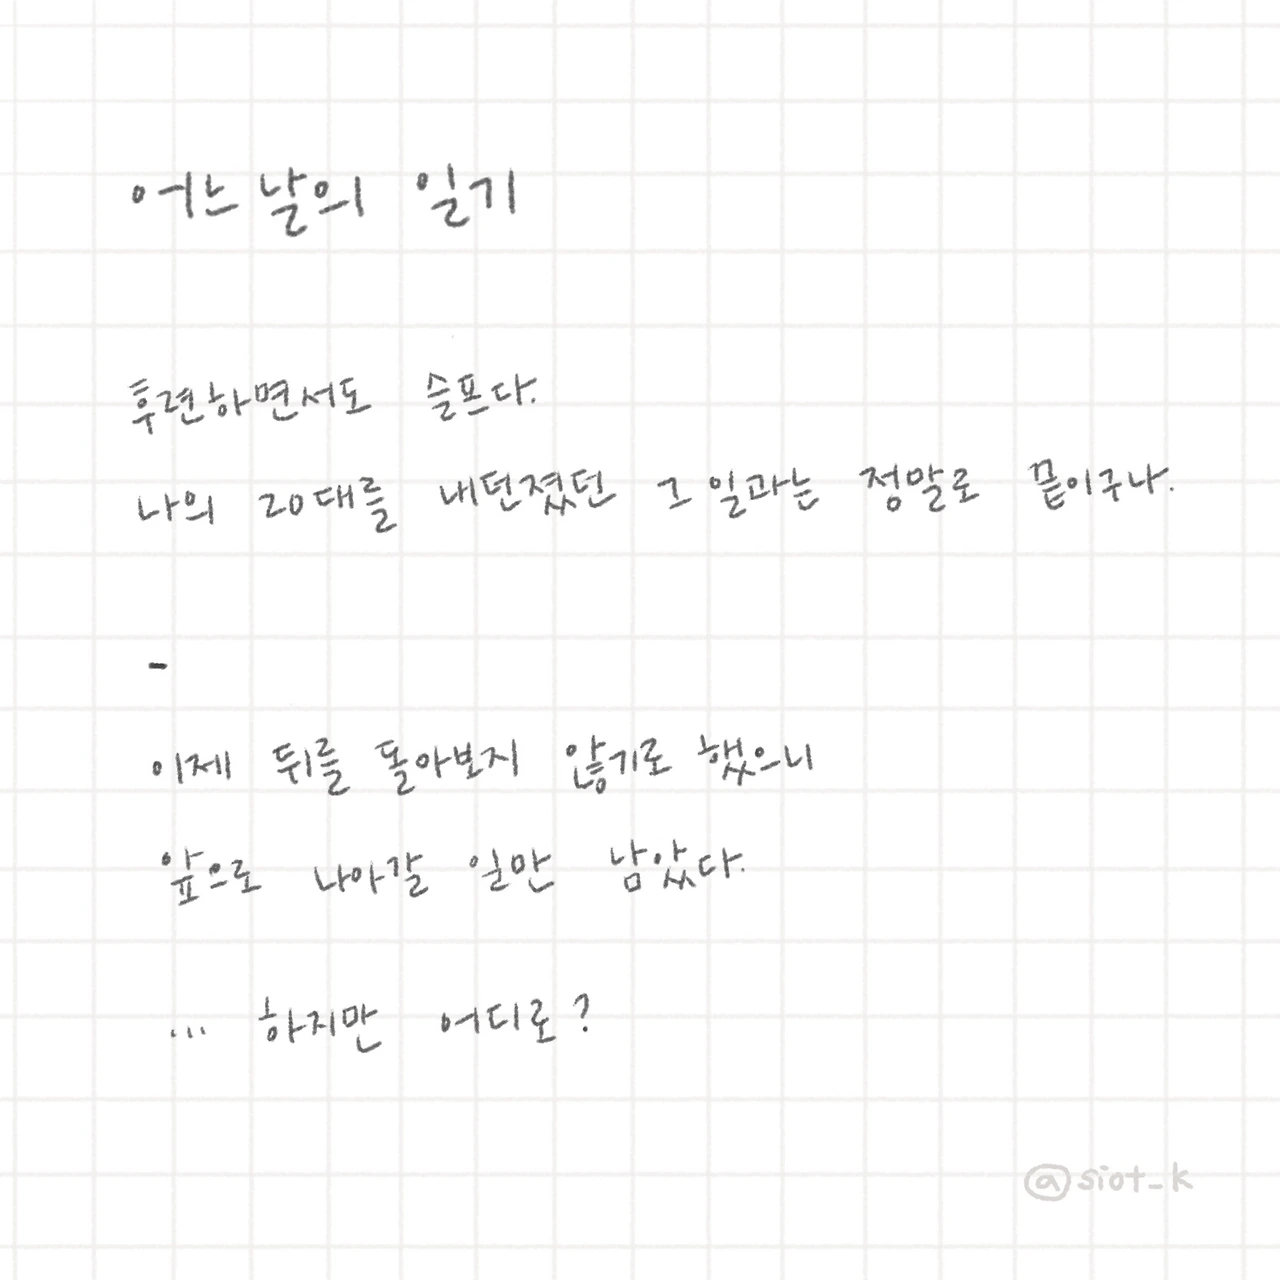 어느 날의 일기
후련하면서도 슬프다.
나의 20대를 내던졌던 그 일과는 정말로 끝이구나.
-
이제 뒤를 돌아보지 않기로 했으니
앞으로 나아갈 일만 남았다.
... 하지만 어디로?
@siot_k